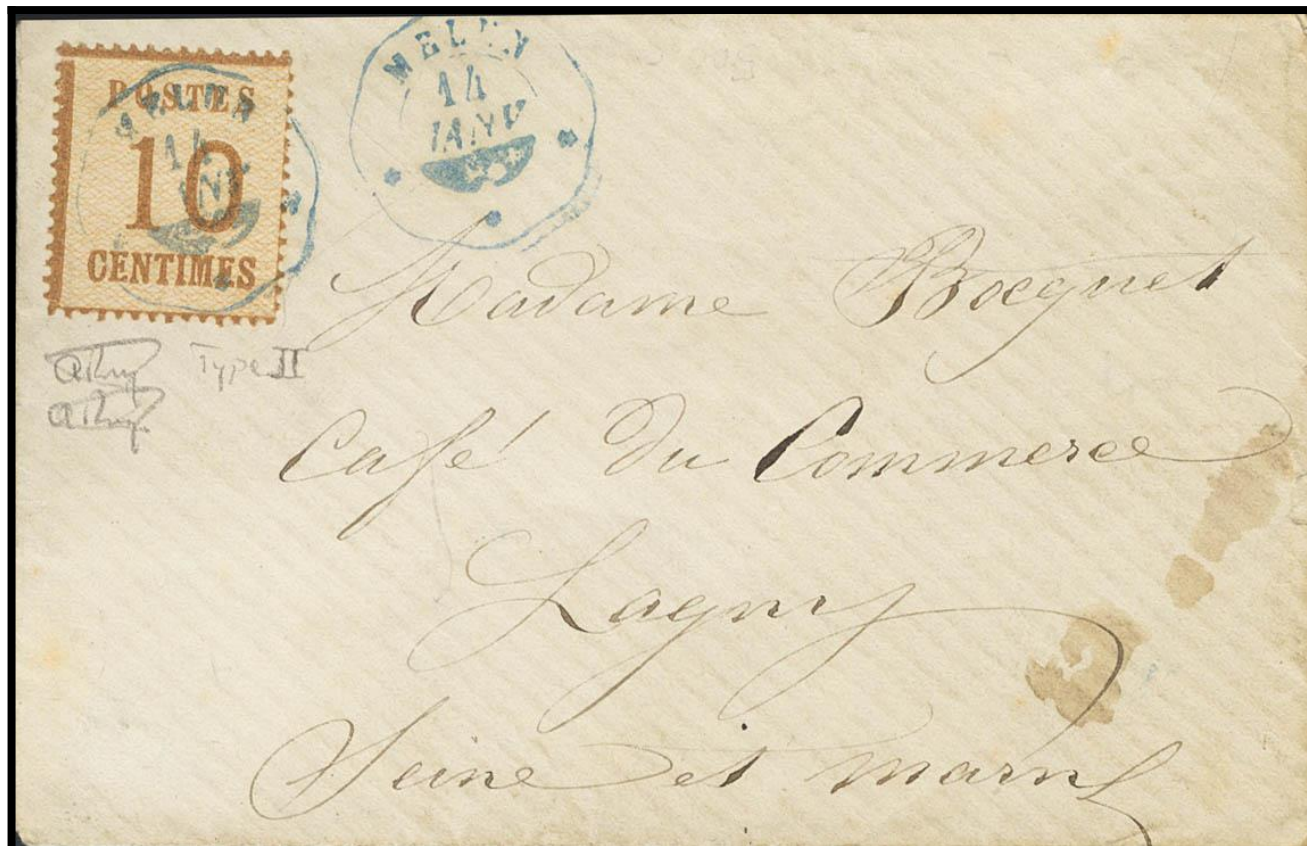 POSTES
10
CENTIMES
14
MELUN
14
JANV
Type II
Madame Bocquet
Café du Commerce
Lagny
Seine et marne